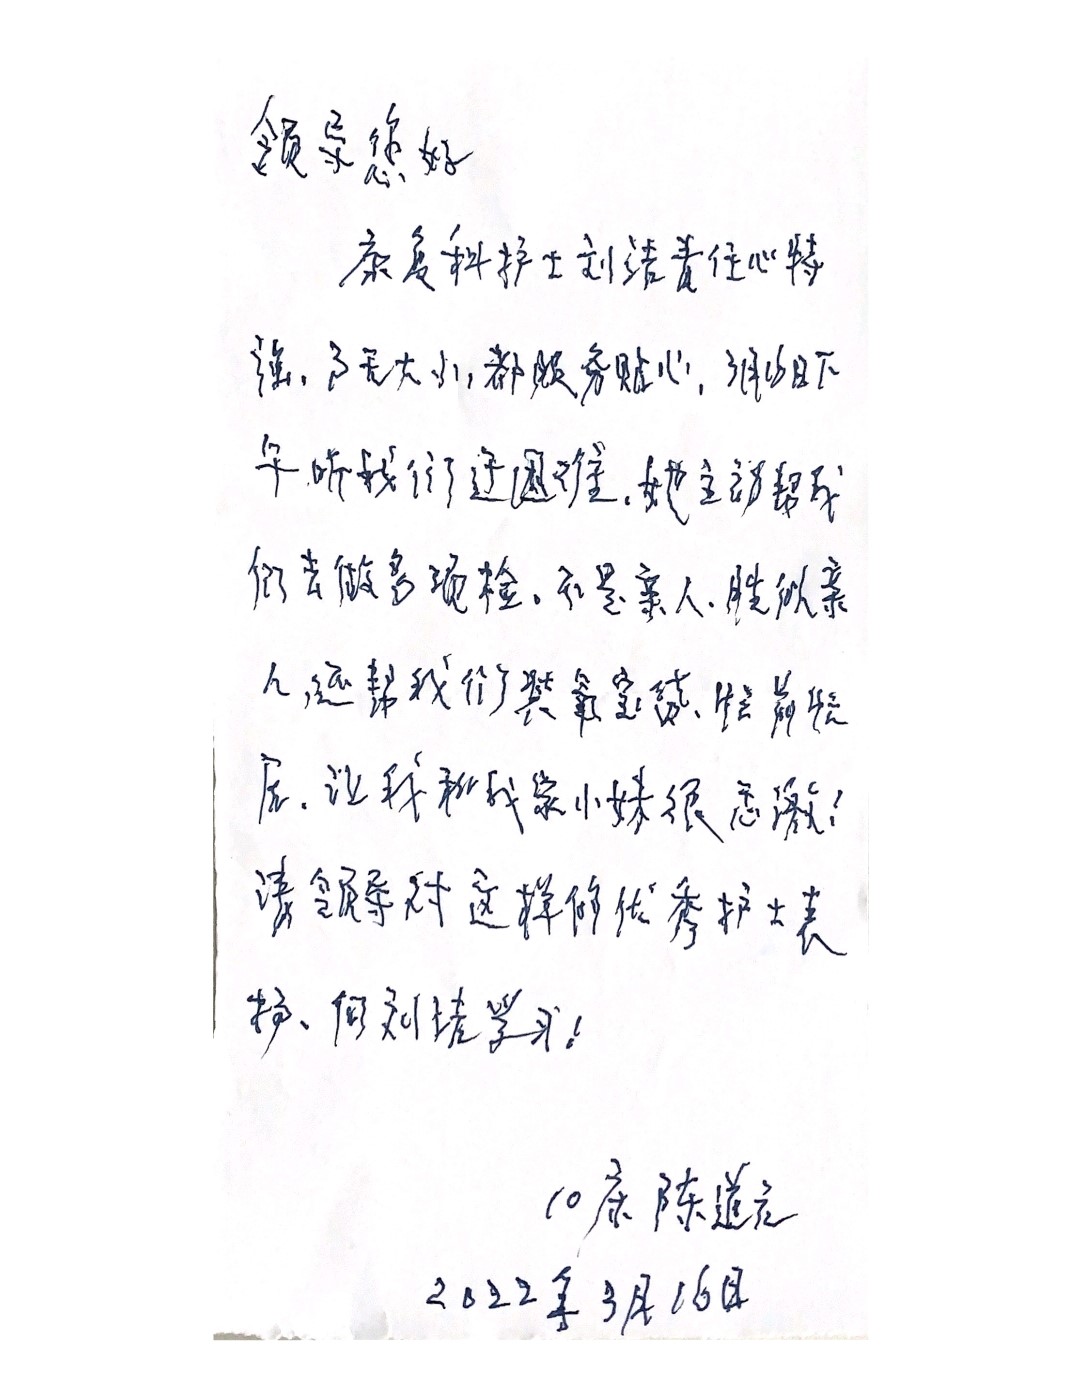 领导您好
康复科护士刘洁责任心特
强,事无大小,都服务贴心,3月16日下
午听我们行走困难,她主动帮我
们去做多项检。不是亲人,胜似亲
人,还帮我们装氧气袋、忙前忙
后,让我和我家小妹很感激!
请领导对这样的优秀护士表
扬、向刘洁学习!
10床 陈道元
2022年3月16日